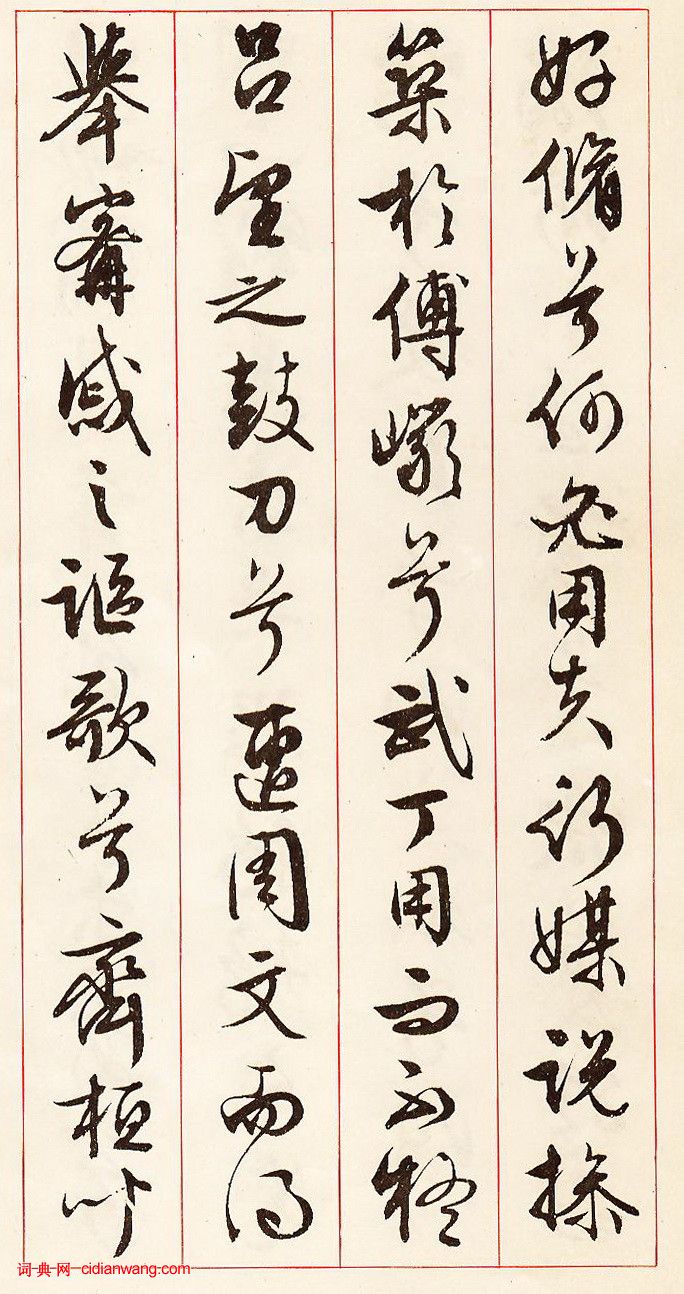 好脩兮何必用夫行媒說操
築於傅巖兮武丁用而不疑
吕望之鼓刀兮遭周文而得
舉甯戚之謳歌兮齊桓以
词典网 cidianwang.com